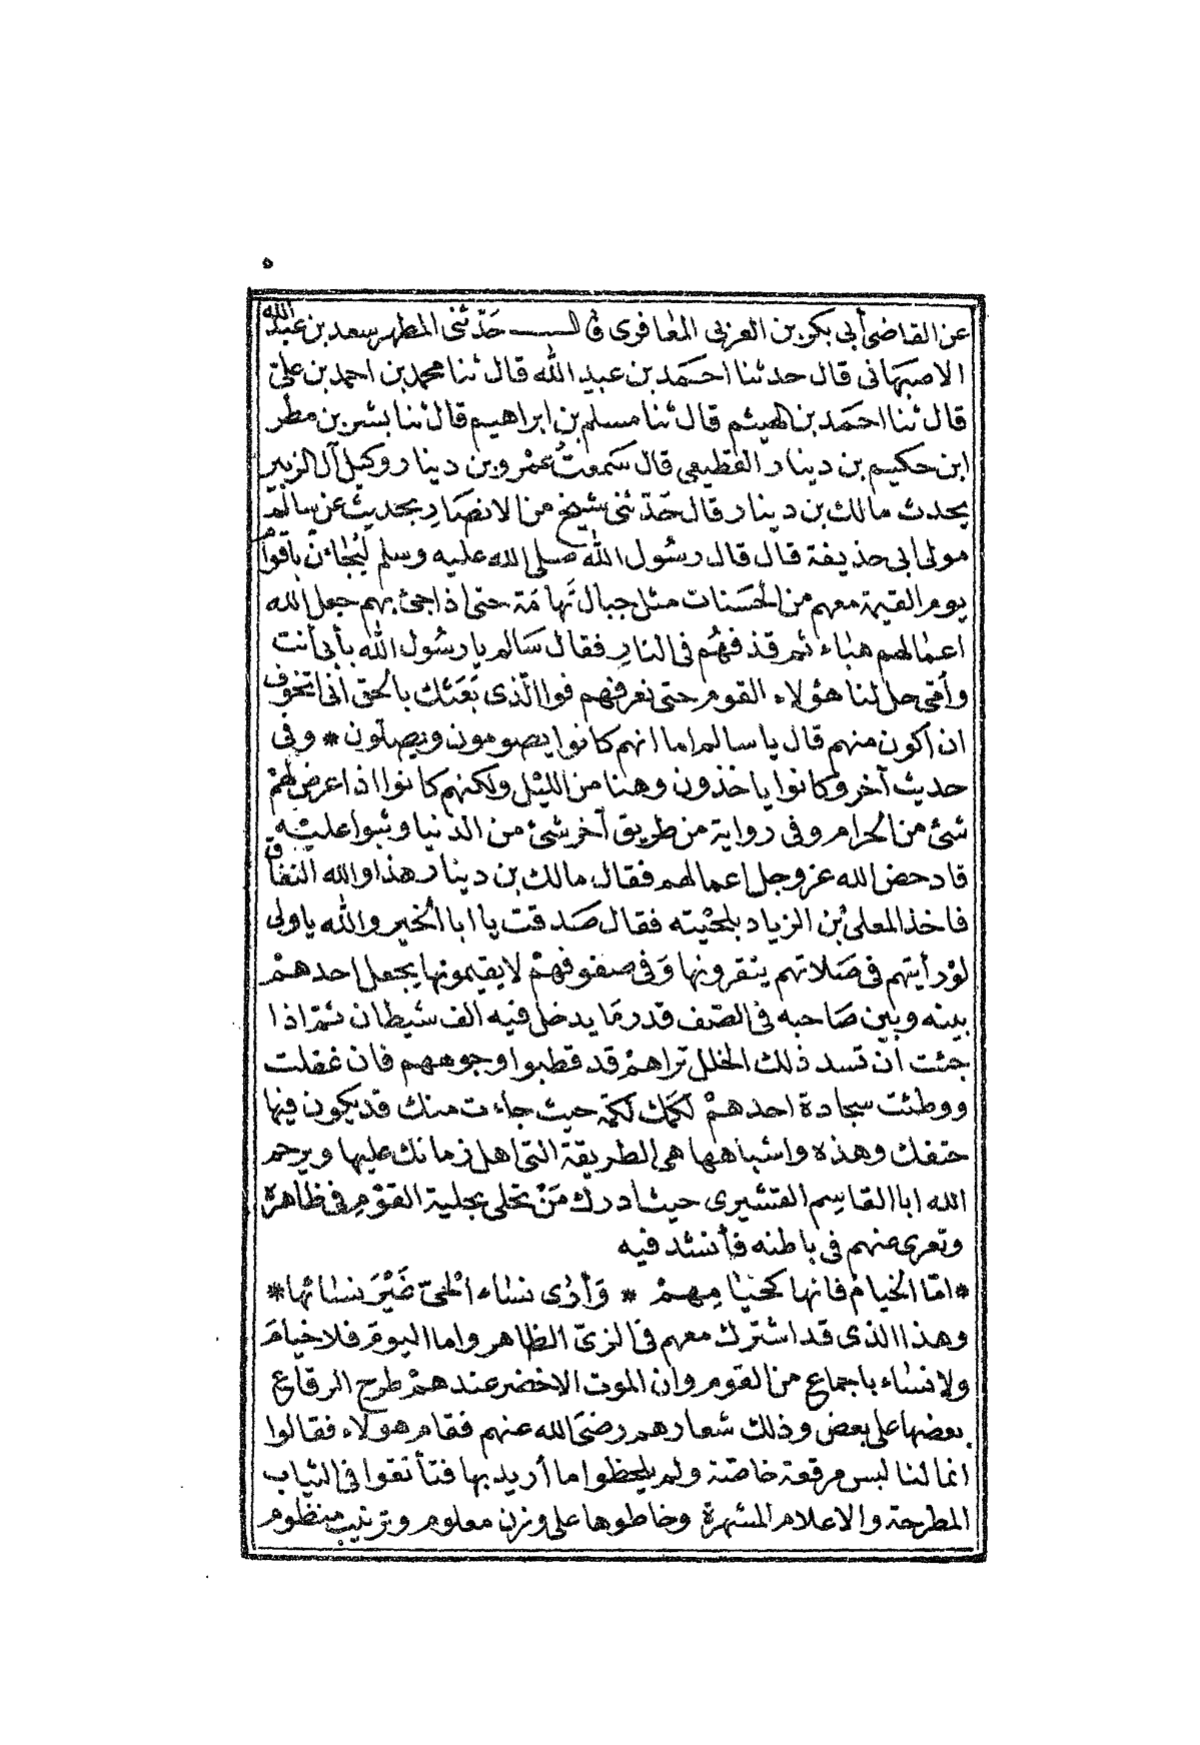 ٥
عن القاضى أبى بكر بن العربى المعافرى قال حَدّثنى المطهر سعد بن عبد الله
الاصبهانى قال حدثنا احمَد بن عبد الله قال ثنا محمد بن احمد بن علىّ
قال ثنا احمَد بن الهيثم قال ثنا مسلم بن ابراهيم قال ثنا بشر بن مطر
ابن حكيم بن دينار القطيعى قال سَمعتُ عَمْرو بن دينار وكيل آل الزبير
يحدث مالك بن دينار قال حَدّثنى شيخ من الانصَارِ بحديث عن سالم
مولى ابى حذيفة قال قال رسُول الله صلى الله عليه وسلم لَيُجَاءَنّ باقوام
يوم القيمة معهم من الحَسَنات مثل جبال تَهامَة حتى اذا جئ بهم جعل الله
اعمالهم هبَاء ثم قذفهُم فى النارِ فقال سَالم يا رسُول الله بأبى أنت
وأمى حل لنا هؤلاء القوم حتى نعرفهم فوا الّذى بَعَثك بالحق أنى اتخوف
ان أكون منهم قال يا سالم اما انهم كانوا يصومون ويصلون * وفى
حديث آخر وكانوا ياخذون وهنا من الليْل ولكنهم كانوا اذا عرض لهمْ
شئ من الحرام وفى رواية من طريق آخر شئ من الدنيا وثبوا عليْه
فادحض الله عز وجل اعمالهم فقال مالك بن دينار هذا والله النفاق
فاخذ المعلى بْن الزياد بلحْيته فقال صَدقت يا ابا الخير والله يا ولى
لوْ رأيتهم فى صَلاتهم ينقرونها وَفى صفوفهمْ لا يقيمونها يجعل احدهمْ
بينه وبين صَاحبه فى الصّف قدر مَا يدخل فيه الف شيطان ثمّ اذا
جئت انّ تسد ذلك الخلل تراهمْ قد قطبوا وجوههم فان غفلت
ووطئت سجادة احدهمْ لكمك لكمَة حيث جاءت منك قد يكون فيها
حتفك وهذه واشباهها هى الطريقة التى اهل زمانك عليها ويرحم
الله ابا القاسِم القشيرى حيث ادرك مَنْ تحلى بحلية القوْمِ فى ظاهره
وتعرى عنهم فى باطنه فأنشد فيه
*امّا الخيامُ فانها كخيَا مِهمْ * وَأرٰى نسَاء الْحَىّ غَيْرَ نسَائها*
وهذا الذى قد اشترك معهم فى الزىّ الظاهر واما اليومَ فلا خيامَ
ولا نسَاء باجماع من القوم وان الموت الاخضر عندهمْ طرح الرقاع
بعضها على بعض وذلك شعارهم رضىَ الله عنهم فقام هولاء فقالوا
انما لنا لبس مرقعة خاصّة ولم يلحظوا ما أريد بها فتأنقوا فى الثياب
المطرحة والاعلام المشهرة وخاطوها على وزن معلوم وترتيب منظوم